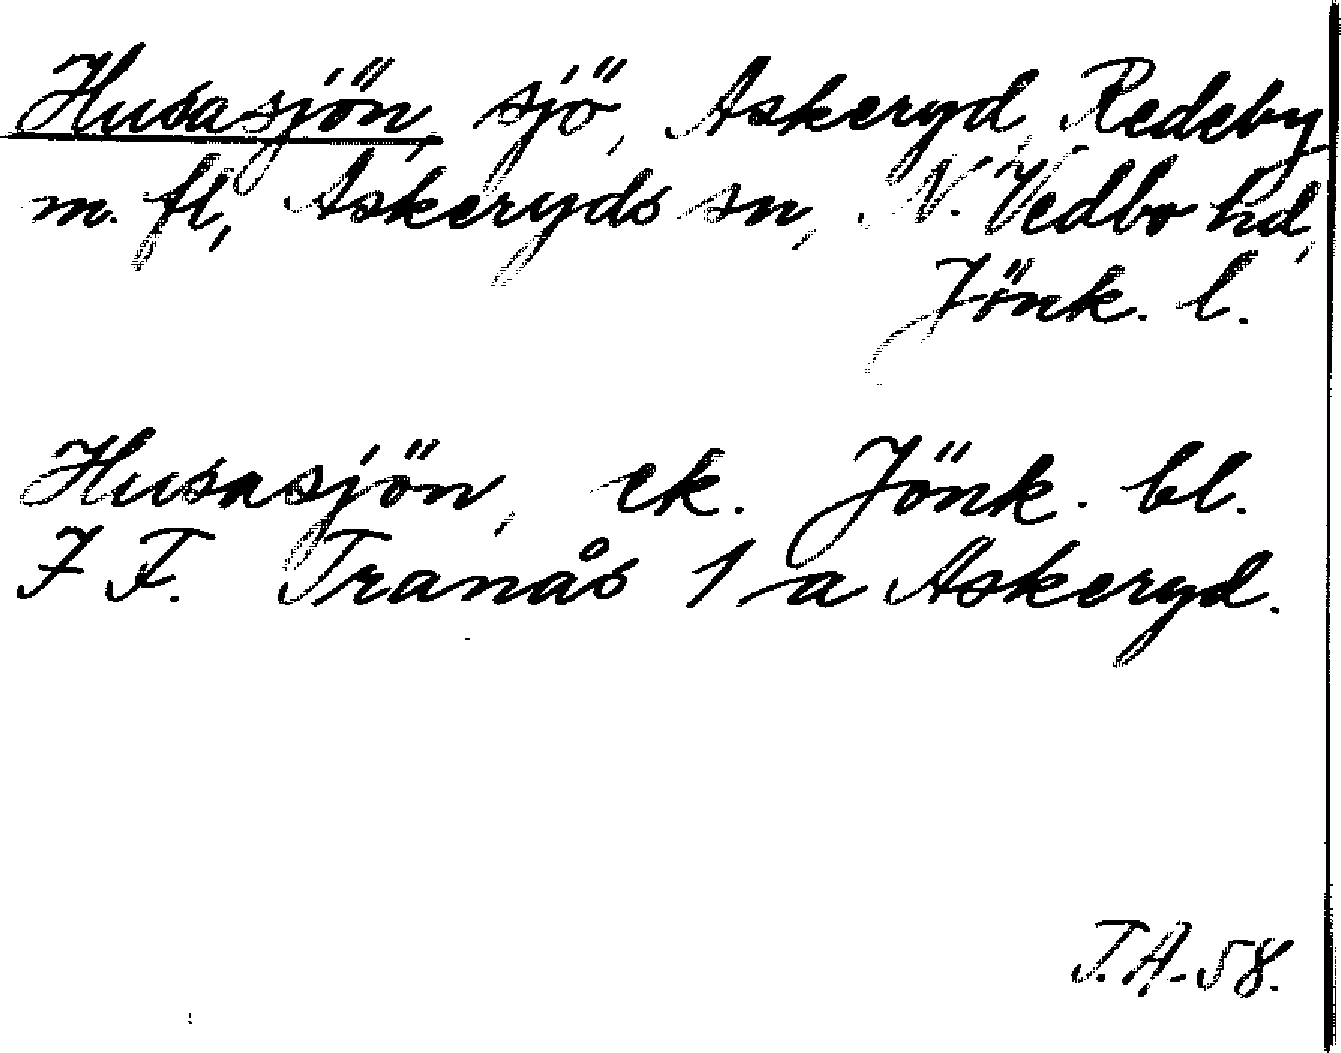 Husasjön, sjö, Askeryd, Redeby
m. fl., Askeryds sn, N. Vedbo hd,
Jönk. l.
Husasjön, ek. Jönk. bl.
7 F. Tranås 1 a Askeryd.
T.A. 58.